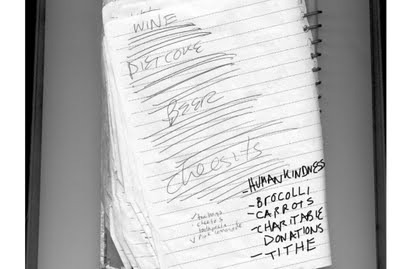 WINE
DIET COKE
BEER
Cheesits
✓ pink lemonade
-HUMANKINDNESS
-BROCOLLI
-CARROTS
-CHARITABLE
DONATIONS
-TITHE